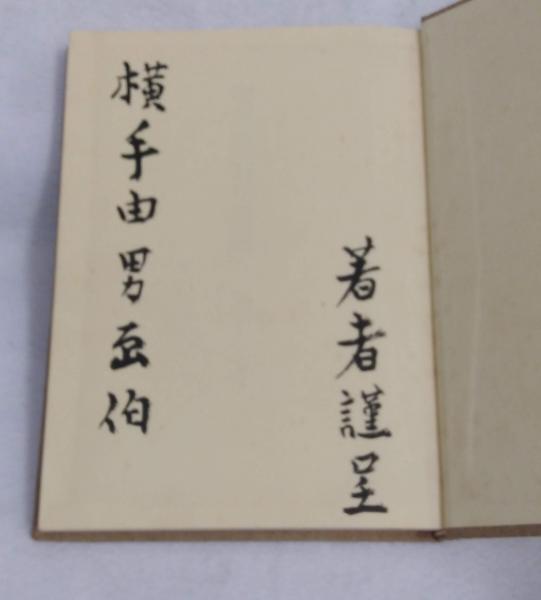 著者謹呈
横手由男画伯